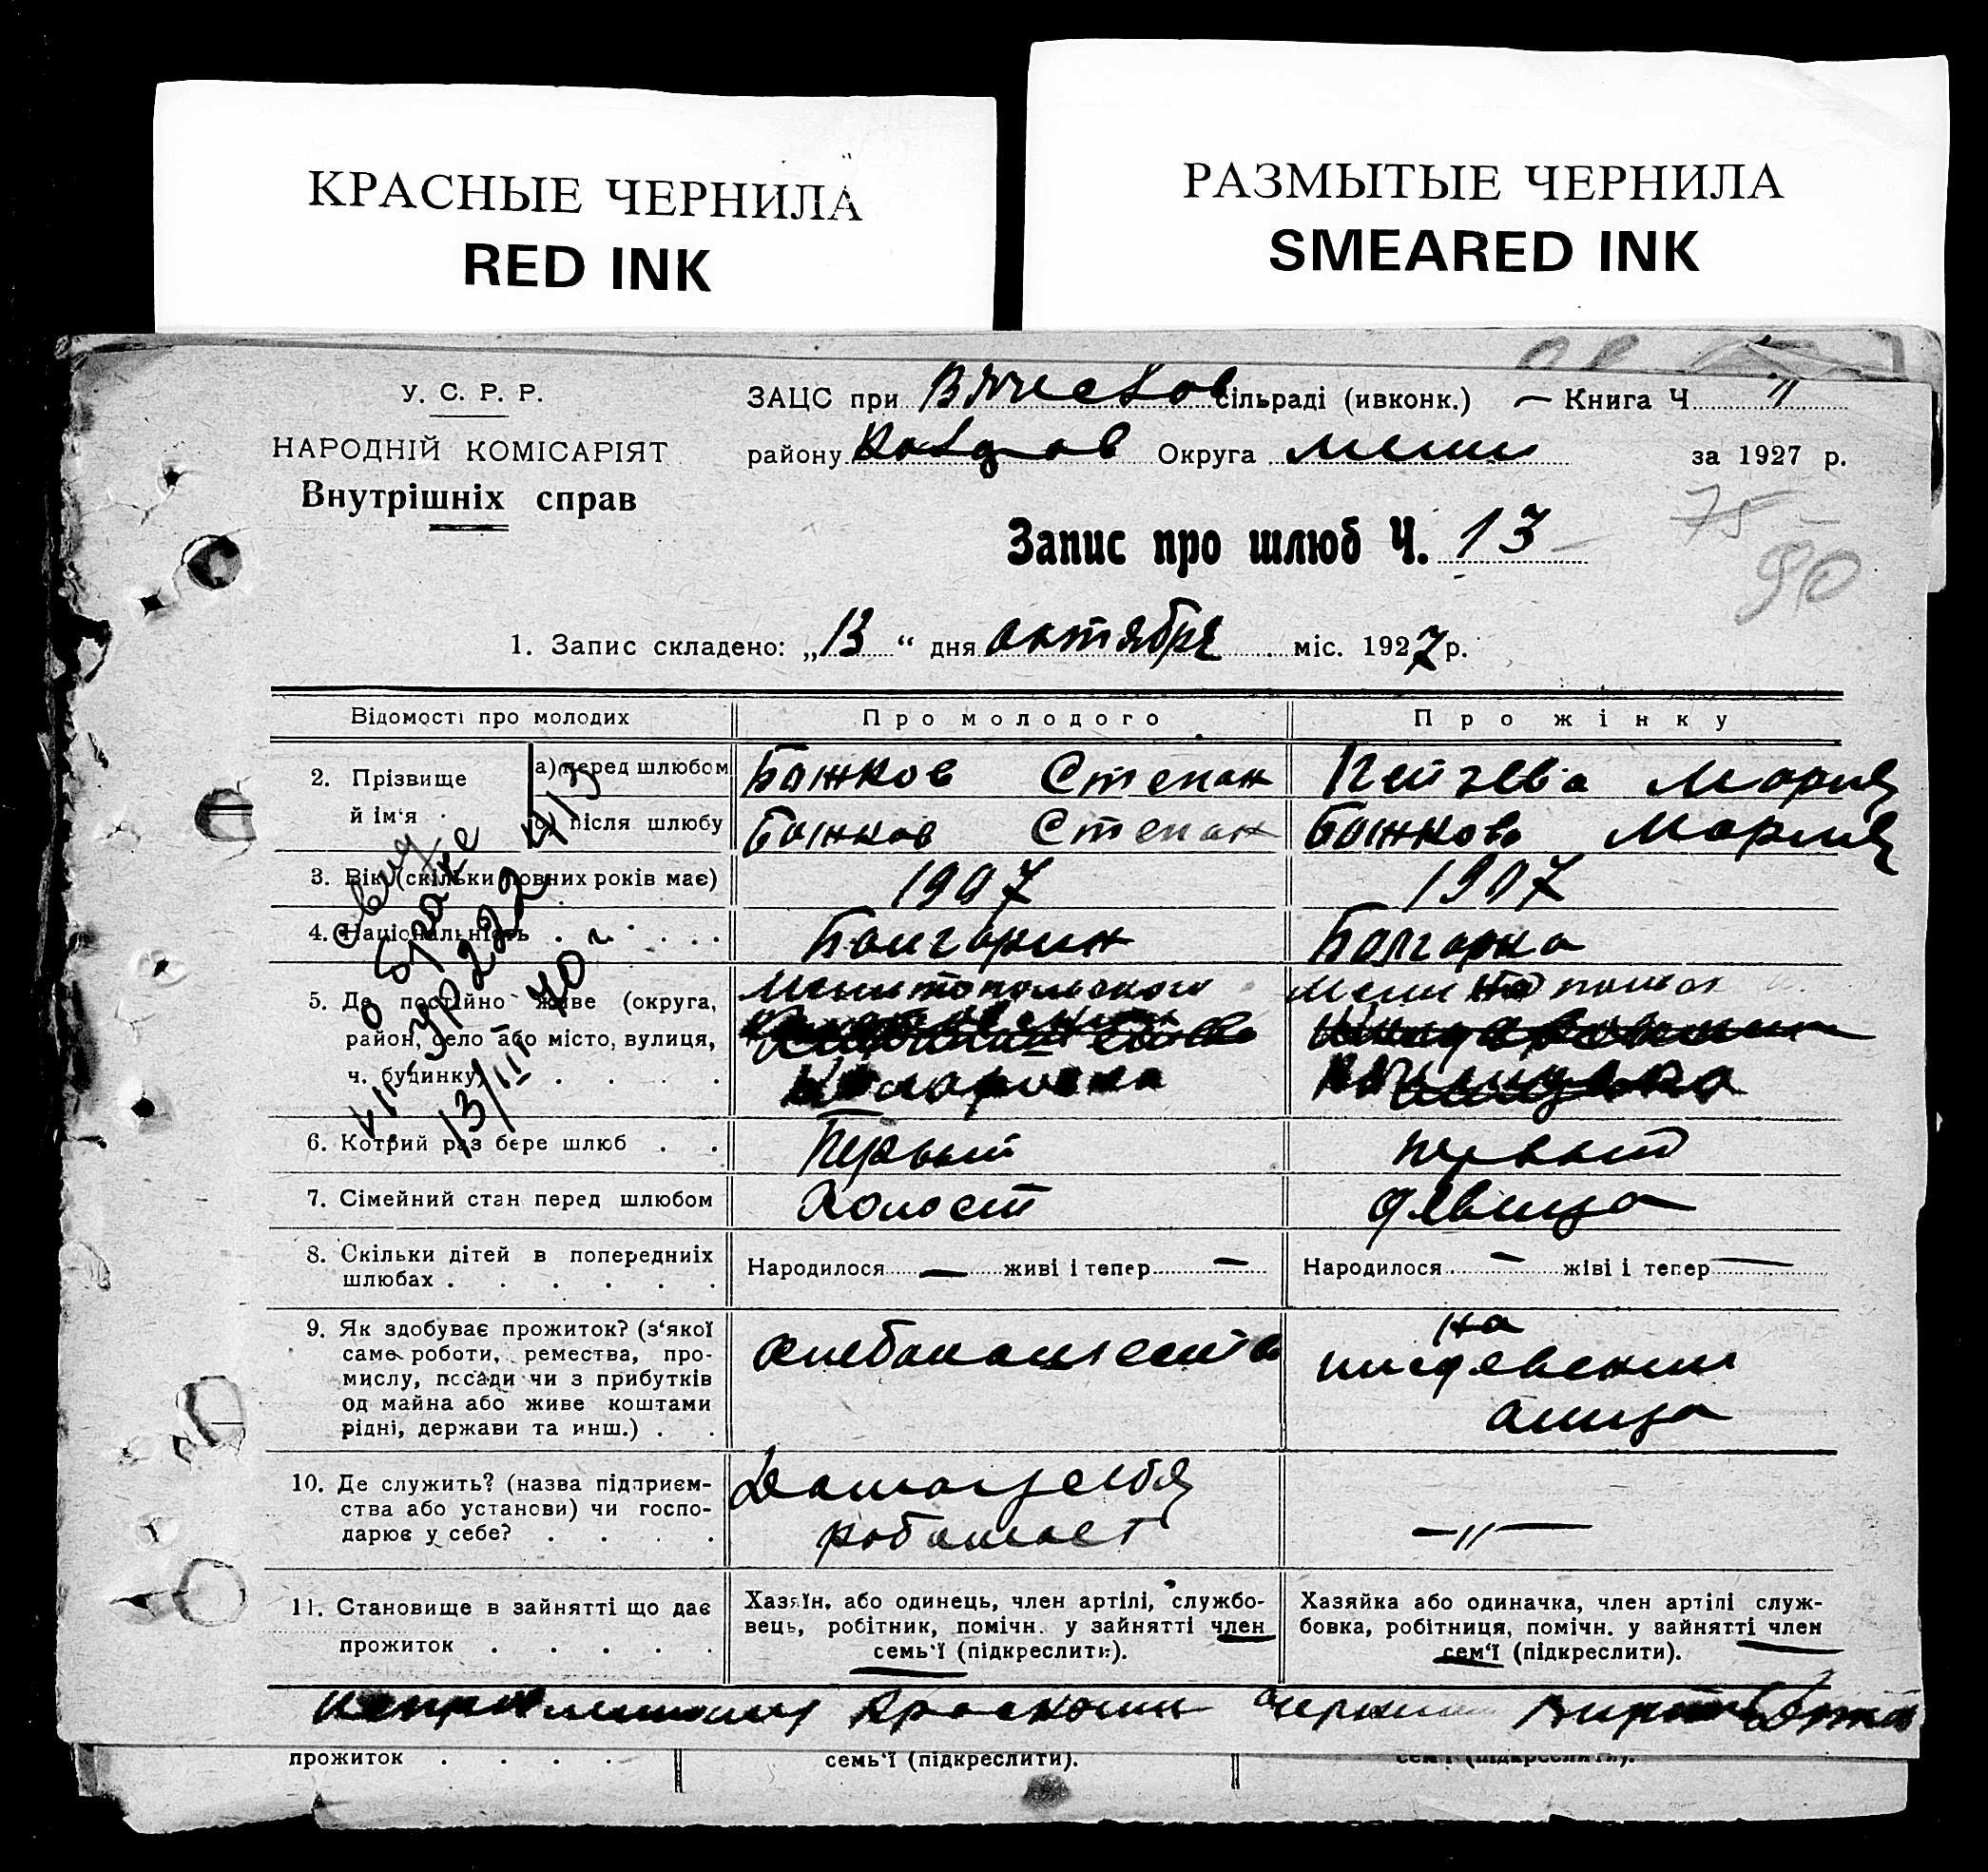 КРАСНЫЕ ЧЕРНИЛА
RED INK
РАЗМЫТЫЕ ЧЕРНИЛА
SMEARED INK
У. С. Р. Р.
НАРОДНІЙ КОМІСАРІЯТ
Внутрішніх справ
ЗАЦС при сільраді (ивконк.) — Книга Ч. 11
району Округа за 1927 р.
75
90
Запис про шлюб Ч. 13
1. Запис складено: „13“ дня октября міс. 1927 р.
Відомості про молодих Про молодого Про жінку
2. Прізвище й ім'я
а) перед шлюбом Божков Степан Мария
б) після шлюбу Божков Степан Божкова Мария
3. Вік (скільки повних років має) 1907 1907
4. Національність Болгарин Болгарка
5. Де постійно живе (округа, Мелитопольского
район, село або місто, вулиця,
ч. будинку)
6. Котрий раз бере шлюб Первый первый
7. Сімейний стан перед шлюбом Холост девица
8. Скільки дітей в попередниіх
шлюбах Народилося — живі і тепер — Народилося — жіві і тепер —
9. Як здобуває прожиток? (з'якої
саме роботи, ремества, про-
мислу, посади чи з прибутків
од майна або живе коштами
рідні, держави та инш.)
хлебопашество
на
иждевении
отца
10. Де служить? (назва підприєм-
ства або установи) чи госпо-
дарює у себе?
работает
—"—
11. Становище в зайнятті що дає
прожиток
Хазяїн, або одинець, член артілі, службо-
вець, робітник, помічн. у зайнятті член
семь'ї (підкреслити).
Хазяйка або одиначка, член артілі служ-
бовка, робітниця, помічн. у зайнятті член
сем'ї (підкреслити).
о браке
222
13/III 40 г.
прожиток семь'ї (підкреслити).